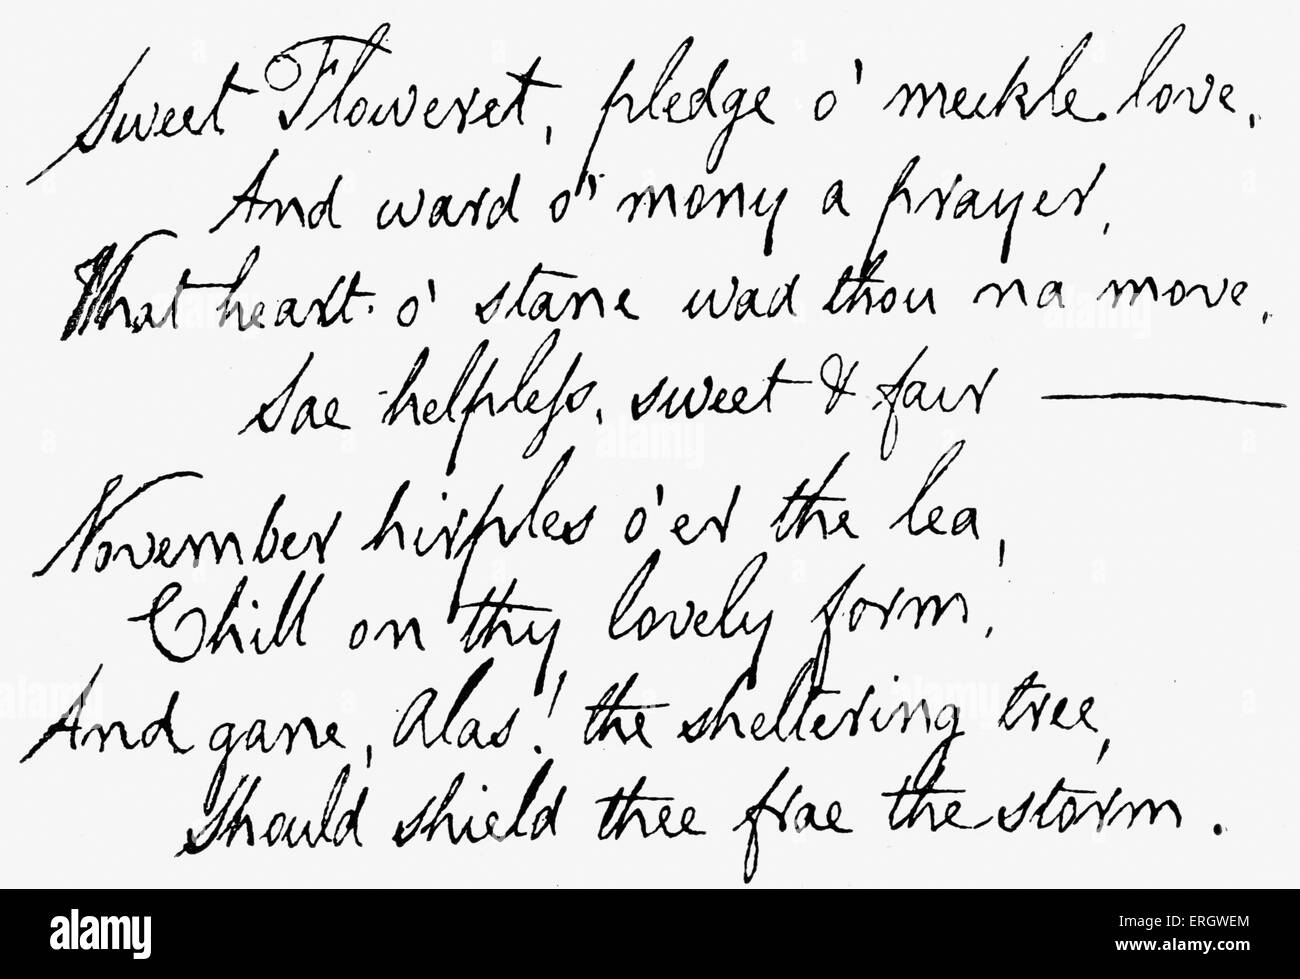 Sweet Floweret, pledge o' meikle love,
And ward o' mony a prayer,
What heart o' stane wad thou na move,
Sae helpless, sweet & fair —
November hirples o'er the lea,
Chill on thy lovely form,
And gane, alas! the sheltering tree,
Should shield thee frae the storm.
alamy
Image ID: ERGWEM
www.alamy.com